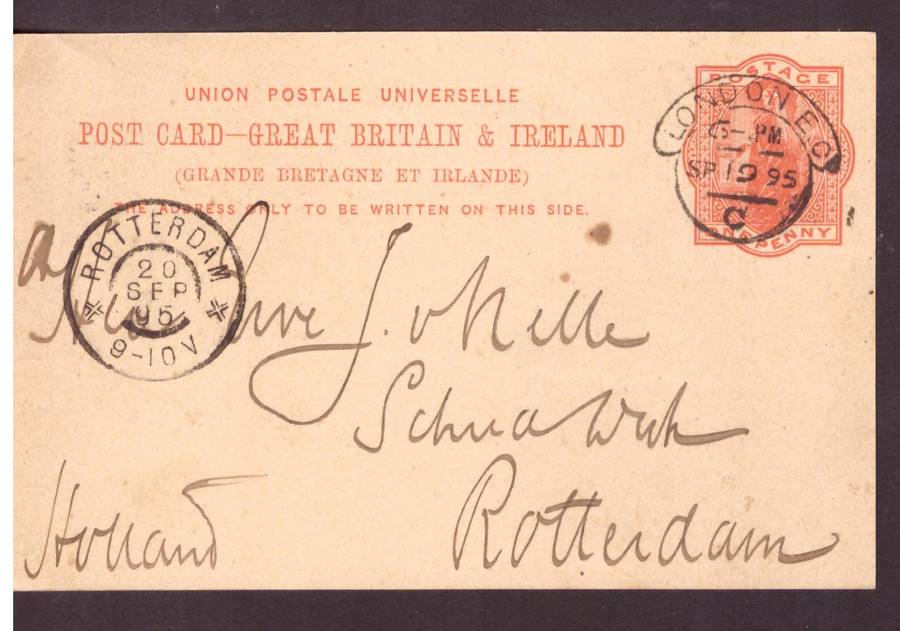 UNION POSTALE UNIVERSELLE
POST CARD—GREAT BRITAIN & IRELAND
(GRANDE BRETAGNE ET IRLANDE)
THE ADDRESS ONLY TO BE WRITTEN ON THIS SIDE.
POSTAGE
ONE PENNY
LONDON E.C
6- PM
SP 19 95
C
ROTTERDAM
20
SEP
95
9-10V
J.
Rotterdam
Holland